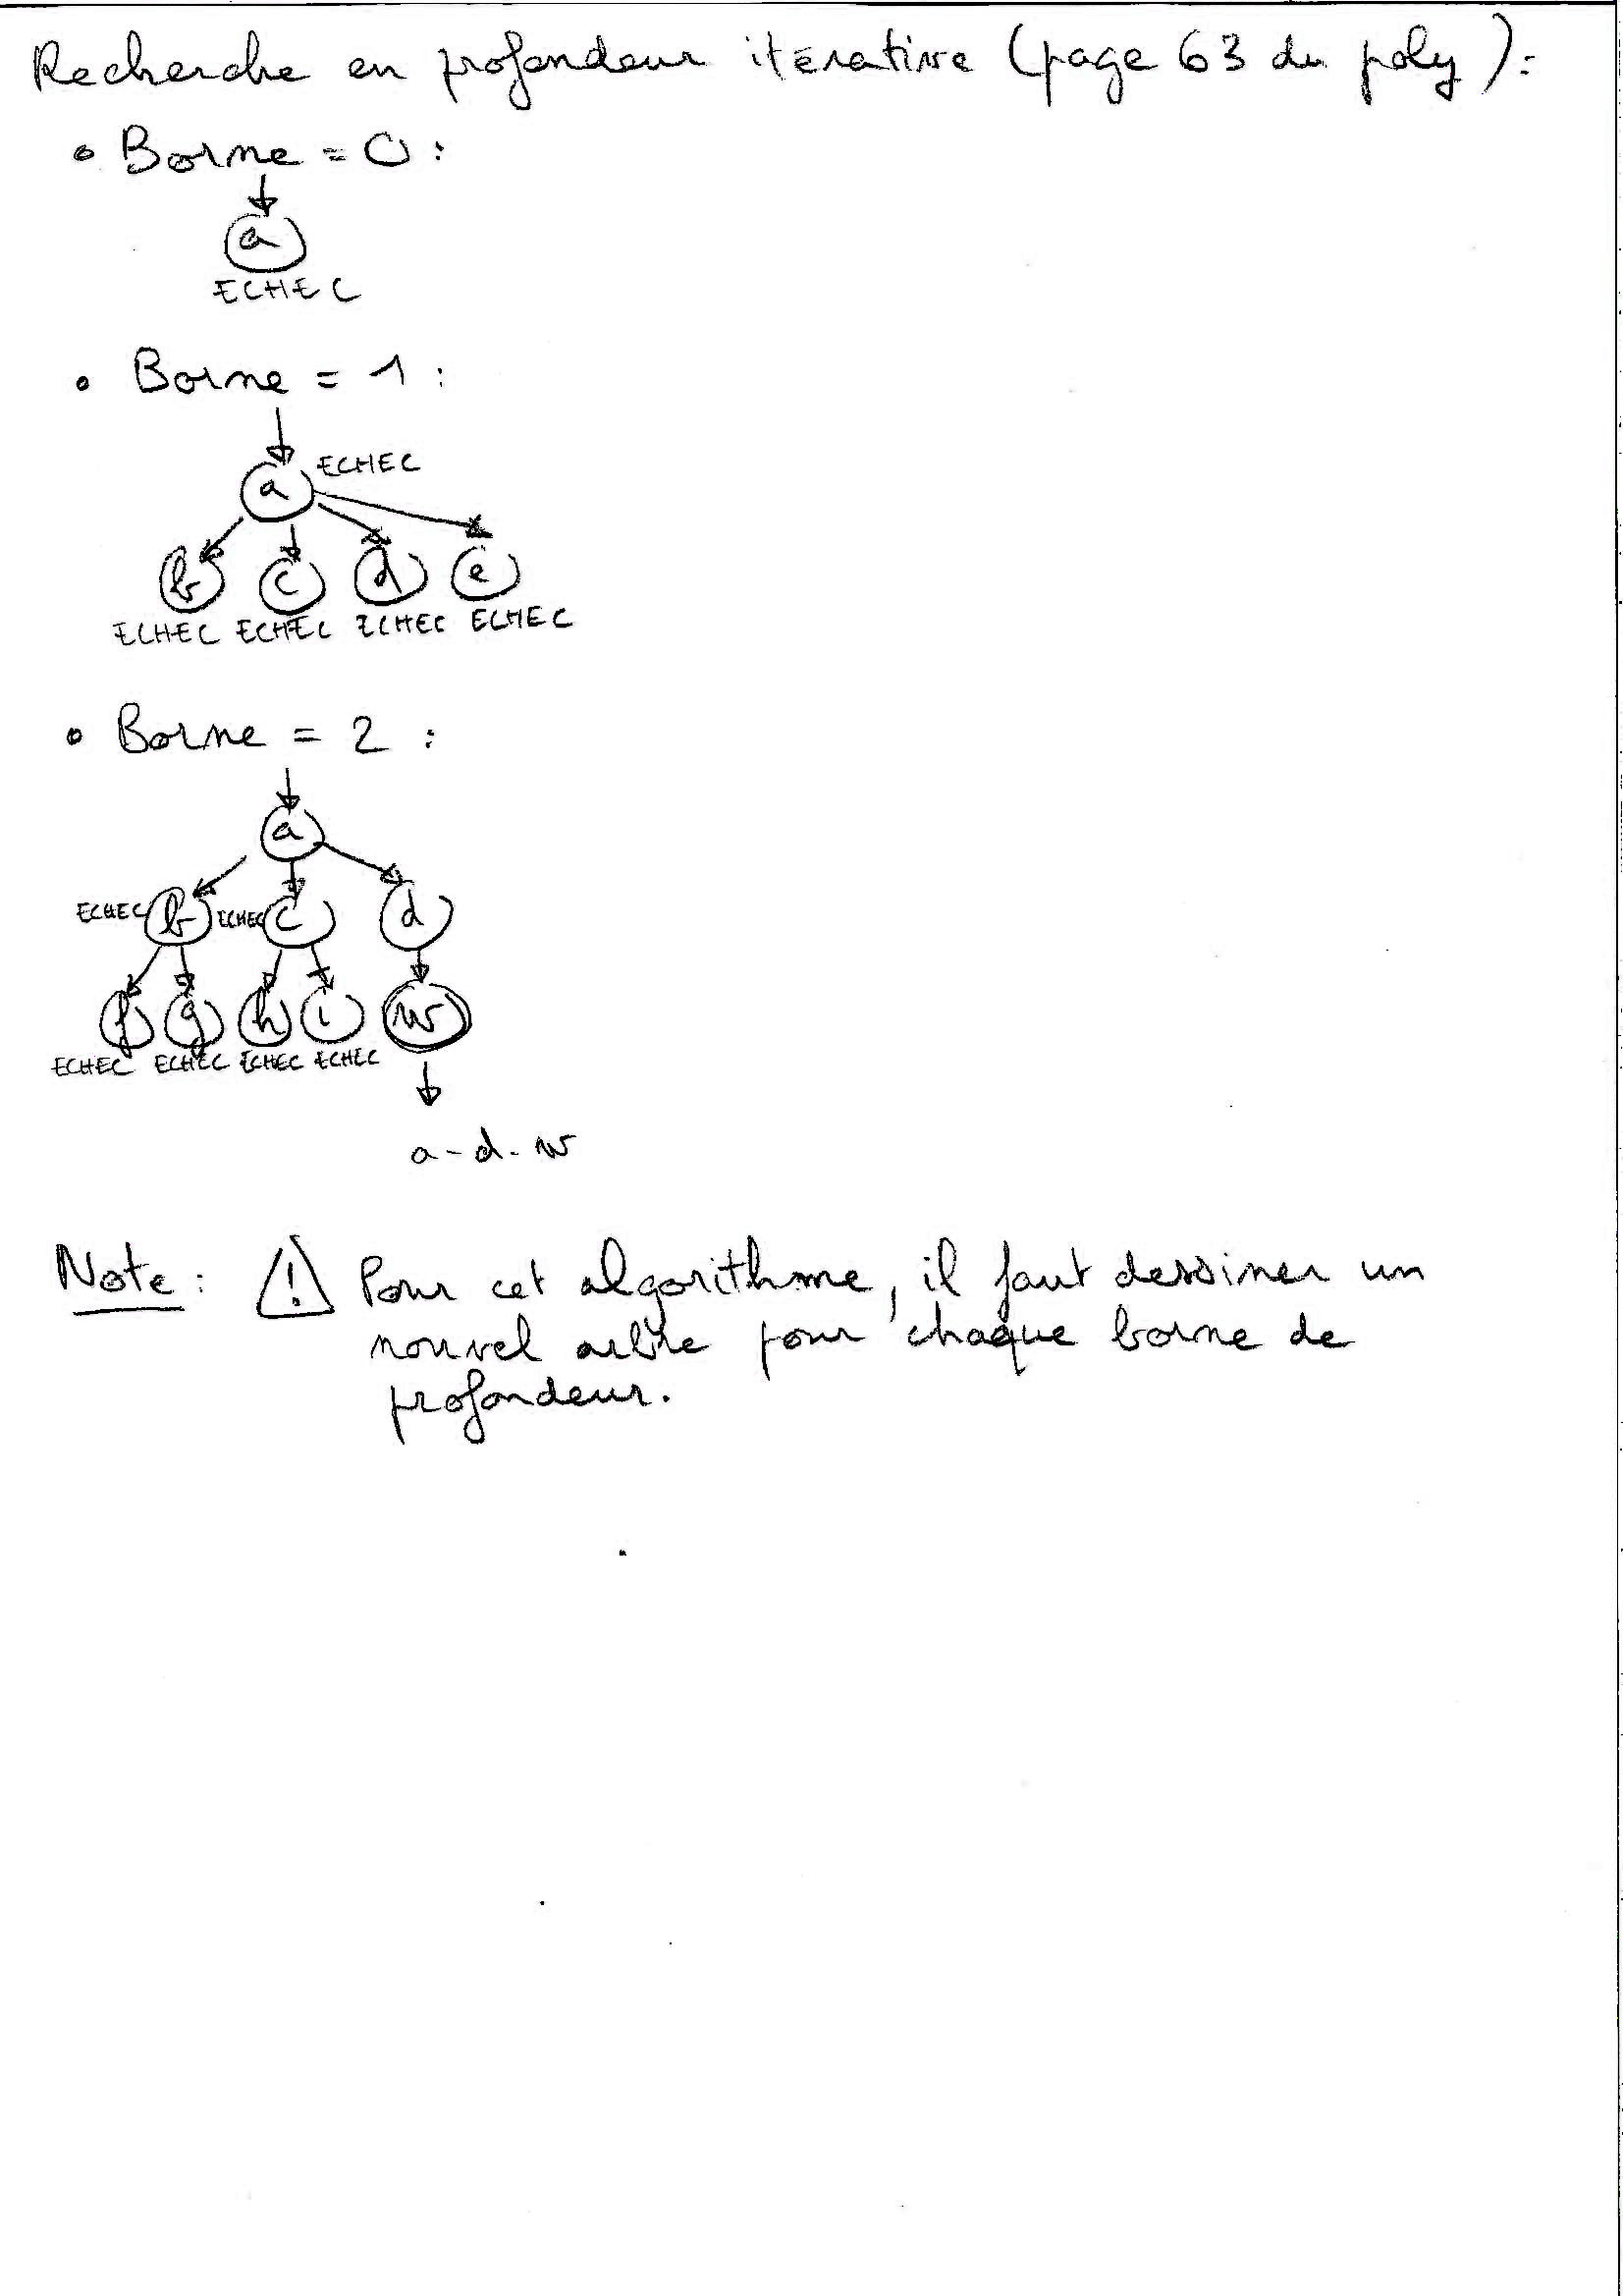 Recherche en profondeur itérative (page 63 du poly) :
• Borne = 0 :
a
ECHEC
• Borne = 1 :
ECHEC
a
b c d e
ECHEC ECHEC ECHEC ECHEC
• Borne = 2 :
a
ECHEC b ECHEC c d
f g h i w
ECHEC ECHEC ECHEC ECHEC
a-d-w
Note : ! Pour cet algorithme, il faut dessiner un
nouvel arbre pour chaque borne de
profondeur.